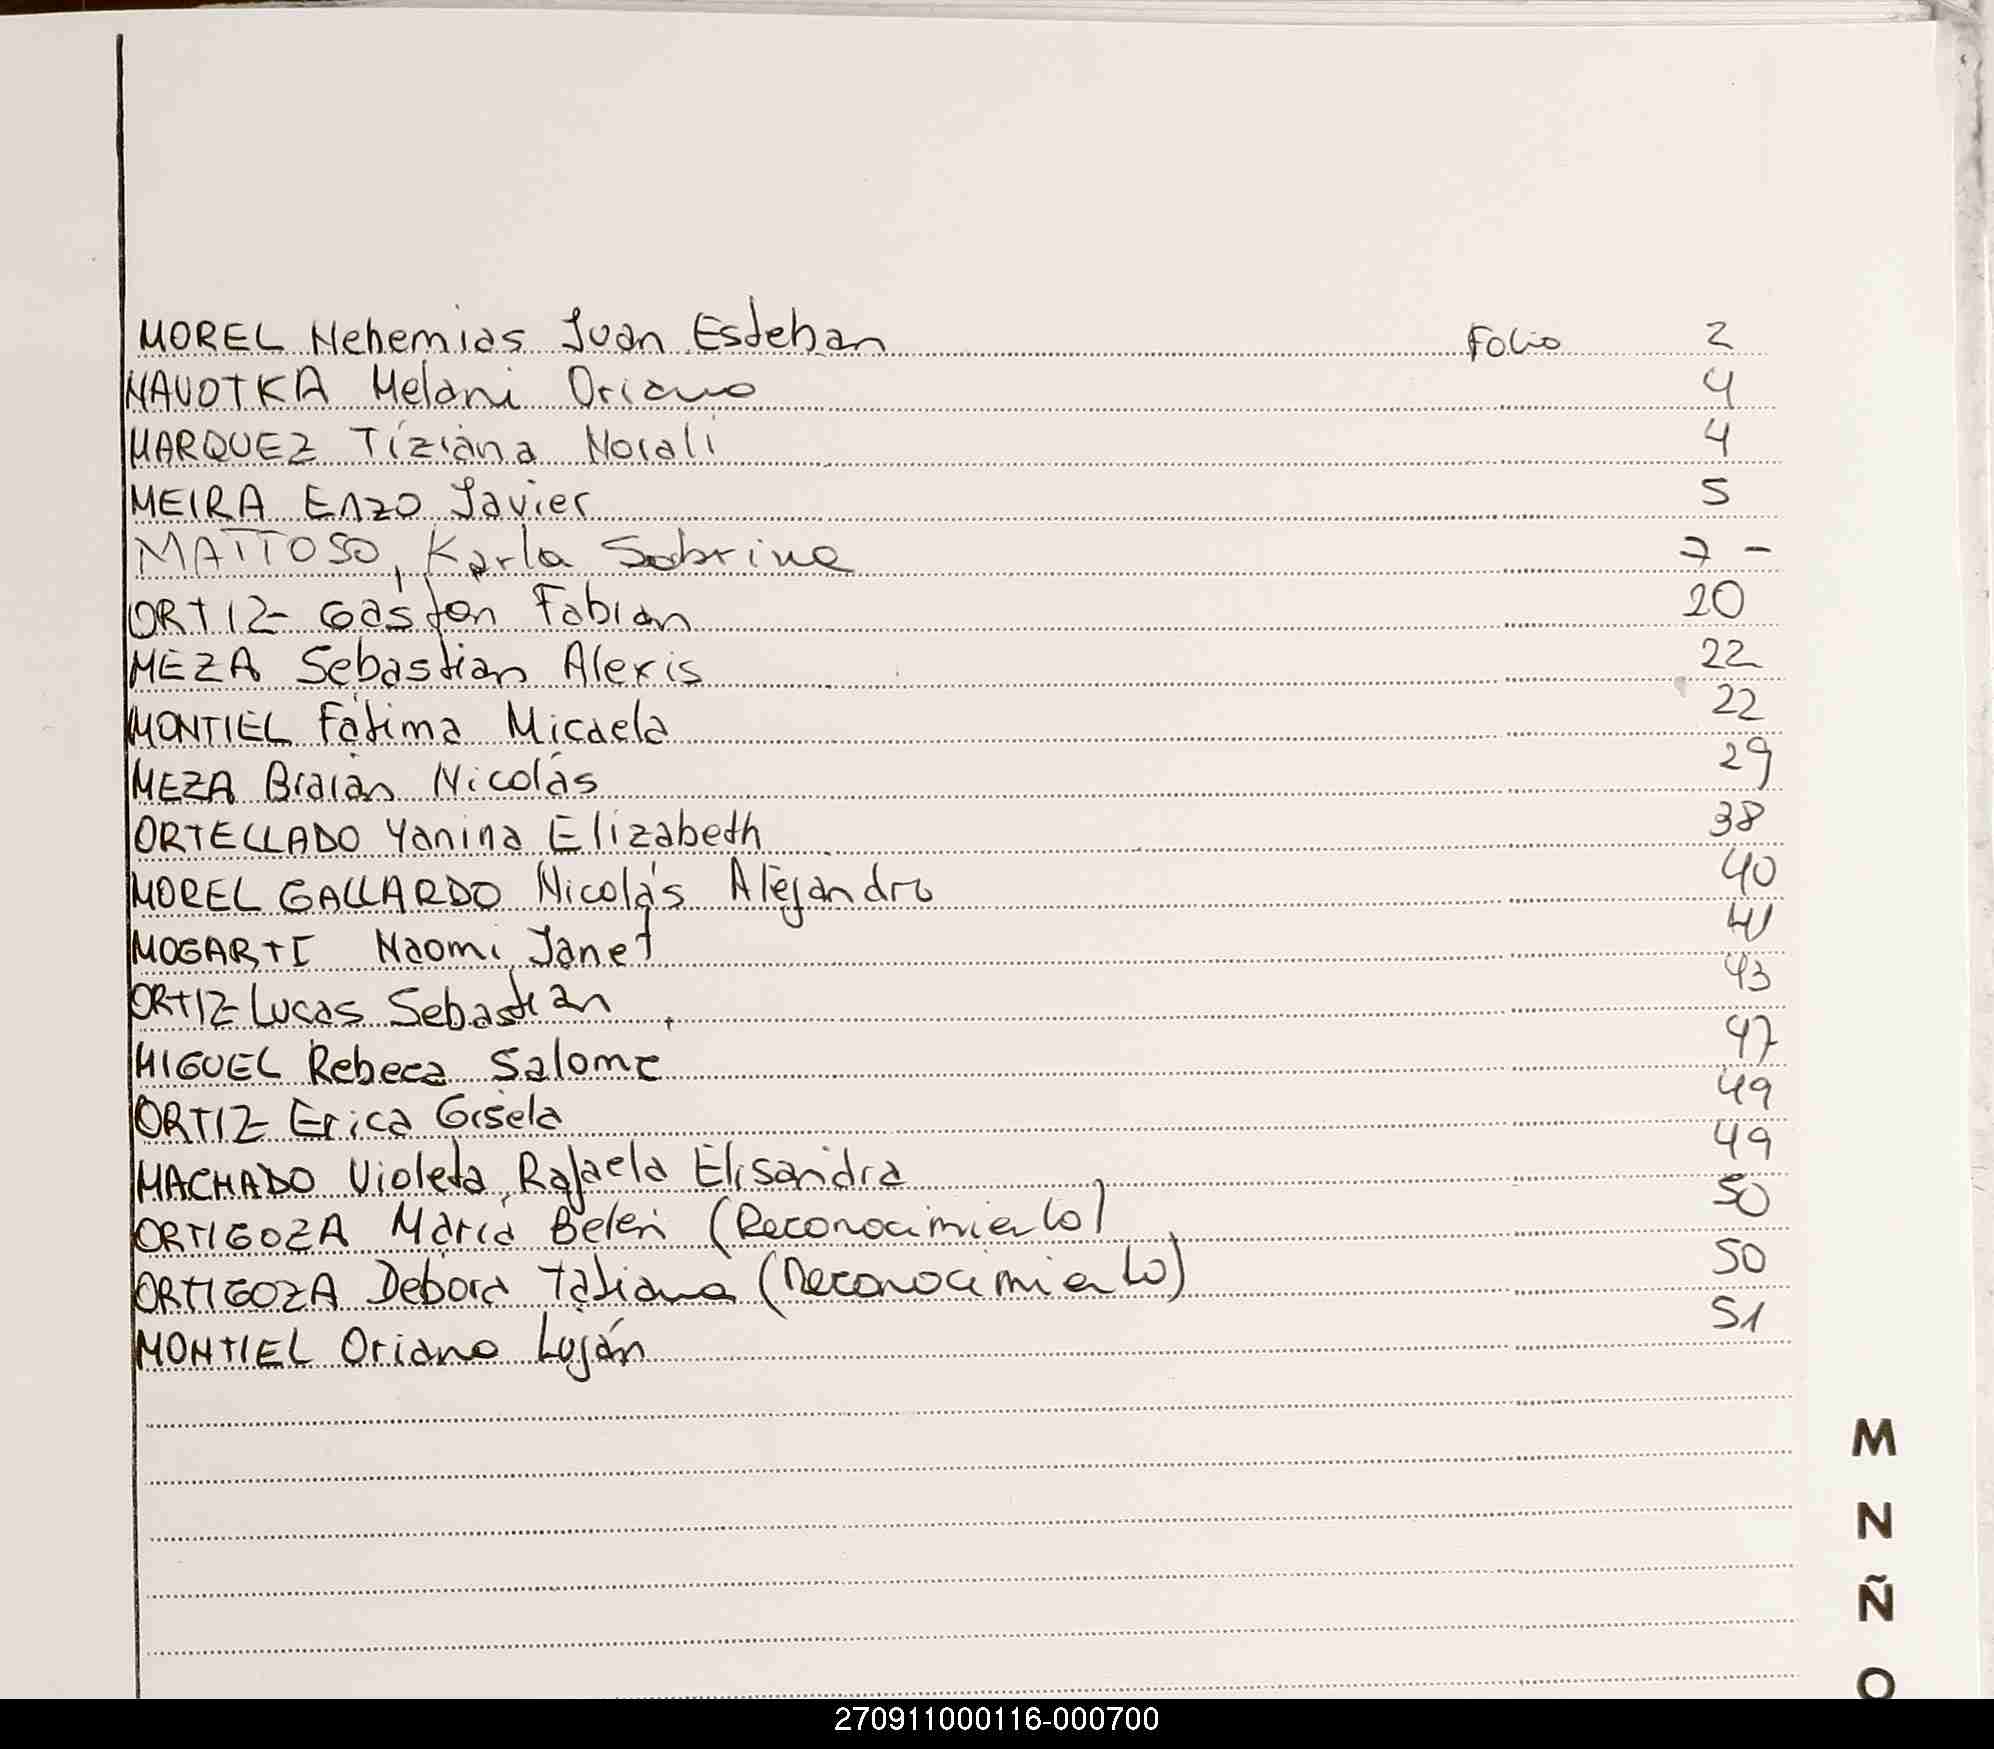 MOREL Nehemias Juan Esteban Folio 2
NAVOTKA Melani Oriana 4
MARQUEZ Tiziana Morali 4
MEIRA Enzo Javier 5
MATTOSO, Karla Sabrina 7 -
ORTIZ Gastón Fabian 20
MEZA Sebastian Alexis 22
MONTIEL Fátima Micaela 22
MEZA Braian Nicolás 29
ORTELLADO Yanina Elizabeth 38
MOREL GALLARDO Nicolás Alejandro 40
MOGARTI Naomi Janet 41
ORTIZ Lucas Sebastian 43
MIGUEL Rebeca Salome 47
ORTIZ Erica Gisela 49
MACHADO Violeta Rafaela Elisandra 49
ORTIGOZA María Belén (Reconocimiento) 50
ORTIGOZA Debora Tatiana (Reconocimiento) 50
MONTIEL Oriana Luján 51
M
N
Ñ
O
270911000116-000700